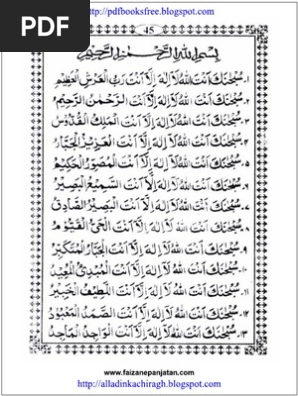 http://pdfbooksfree.blogspot.com
PDF
45
بسم الله الرحمن الرحيم
۱۔ سُبْحٰنَكَ اَنْتَ اللهُ لَآ اِلٰهَ اِلَّا اَنْتَ رَبُّ الْعَرْشِ الْعَظِيْمِ
۲۔ سُبْحٰنَكَ اَنْتَ اللهُ لَآ اِلٰهَ اِلَّا اَنْتَ الرَّحْمٰنُ الرَّحِيْمُ
۳۔ سُبْحٰنَكَ اَنْتَ اللهُ لَآ اِلٰهَ اِلَّا اَنْتَ الْمَلِكُ الْقُدُّوْسُ
۴۔ سُبْحٰنَكَ اَنْتَ اللهُ لَآ اِلٰهَ اِلَّا اَنْتَ الْعَزِيْزُ الْجَبَّارُ
۵۔ سُبْحٰنَكَ اَنْتَ اللهُ لَآ اِلٰهَ اِلَّا اَنْتَ الْمُصَوِّرُ الْحَكِيْمُ
۶۔ سُبْحٰنَكَ اَنْتَ اللهُ لَآ اِلٰهَ اِلَّا اَنْتَ السَّمِيْعُ الْبَصِيْرُ
۷۔ سُبْحٰنَكَ اَنْتَ اللهُ لَآ اِلٰهَ اِلَّا اَنْتَ الْبَصِيْرُ الصَّادِقُ
۸۔ سُبْحٰنَكَ اَنْتَ اللهُ لَآ اِلٰهَ اِلَّا اَنْتَ الْحَيُّ الْقَيُّوْمُ
۹۔ سُبْحٰنَكَ اَنْتَ اللهُ لَآ اِلٰهَ اِلَّا اَنْتَ الْجَبَّارُ الْمُتَكَبِّرُ
۱۰۔ سُبْحٰنَكَ اَنْتَ اللهُ لَآ اِلٰهَ اِلَّا اَنْتَ الْمُبْدِئُ الْمُعِيْدُ
۱۱۔ سُبْحٰنَكَ اَنْتَ اللهُ لَآ اِلٰهَ اِلَّا اَنْتَ اللَّطِيْفُ الْخَبِيْرُ
۱۲۔ سُبْحٰنَكَ اَنْتَ اللهُ لَآ اِلٰهَ اِلَّا اَنْتَ الصَّمَدُ الْمَعْبُوْدُ
۱۳۔ سُبْحٰنَكَ اَنْتَ اللهُ لَآ اِلٰهَ اِلَّا اَنْتَ الْوَاجِدُ الْمَاجِدُ
www.faizanepanjatan.com
http://alladinkachiragh.blogspot.com